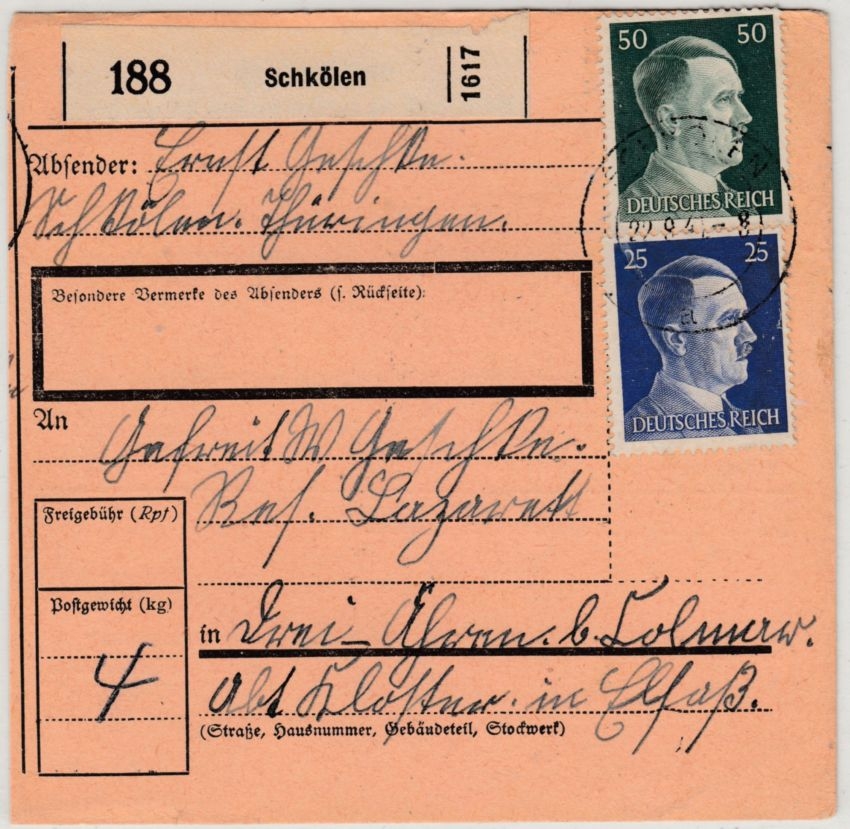 188 Schkölen 1617
50 50
DEUTSCHES REICH
25 25
DEUTSCHES REICH
Absender: Ernst Geschke.
Schkölen. Thüringen.
Besondere Vermerke des Absenders (s. Rückseite):
An
Gefreit W Geschke.
Res. Lazarett
Freigebühr (Rpf)
Postgewicht (kg)
4
in Drei-Ähren. b. Colmar.
Abt Kloster. in Elsaß.
(Straße, Hausnummer, Gebäudeteil, Stockwerk)